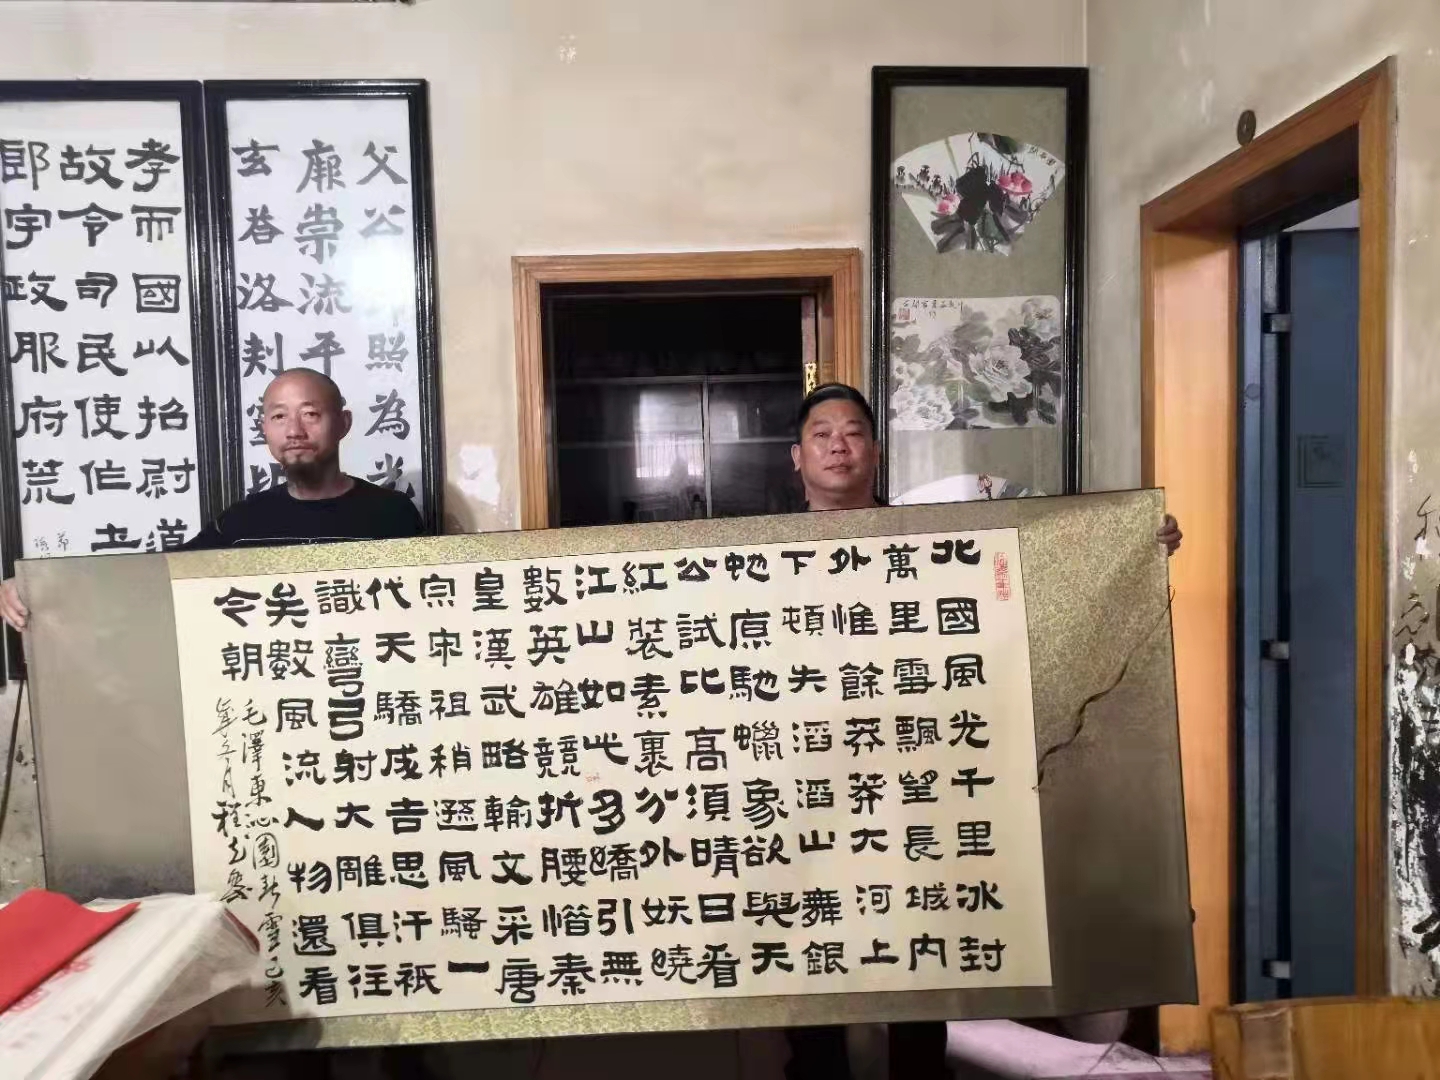 北國風光千里冰封
萬里雪飄望長城內
外惟餘莽莽大河上
下頓失滔滔山舞銀
虵原馳蠟象欲與天
公試比高須晴日看
紅裝素裹分外妖嬈
江山如此多嬌引無
數英雄競折腰惜秦
皇漢武略輸文采唐
宗宋祖稍遜風騷一
代天驕成吉思汗祇
識彎弓射大雕俱往
矣數風流人物還看
今朝
毛澤東沁園春雪己亥
年月程
父公照為光
崇流平
玄洛
孝而國以招尉道
故令司民使作士
郎宇政服府荒